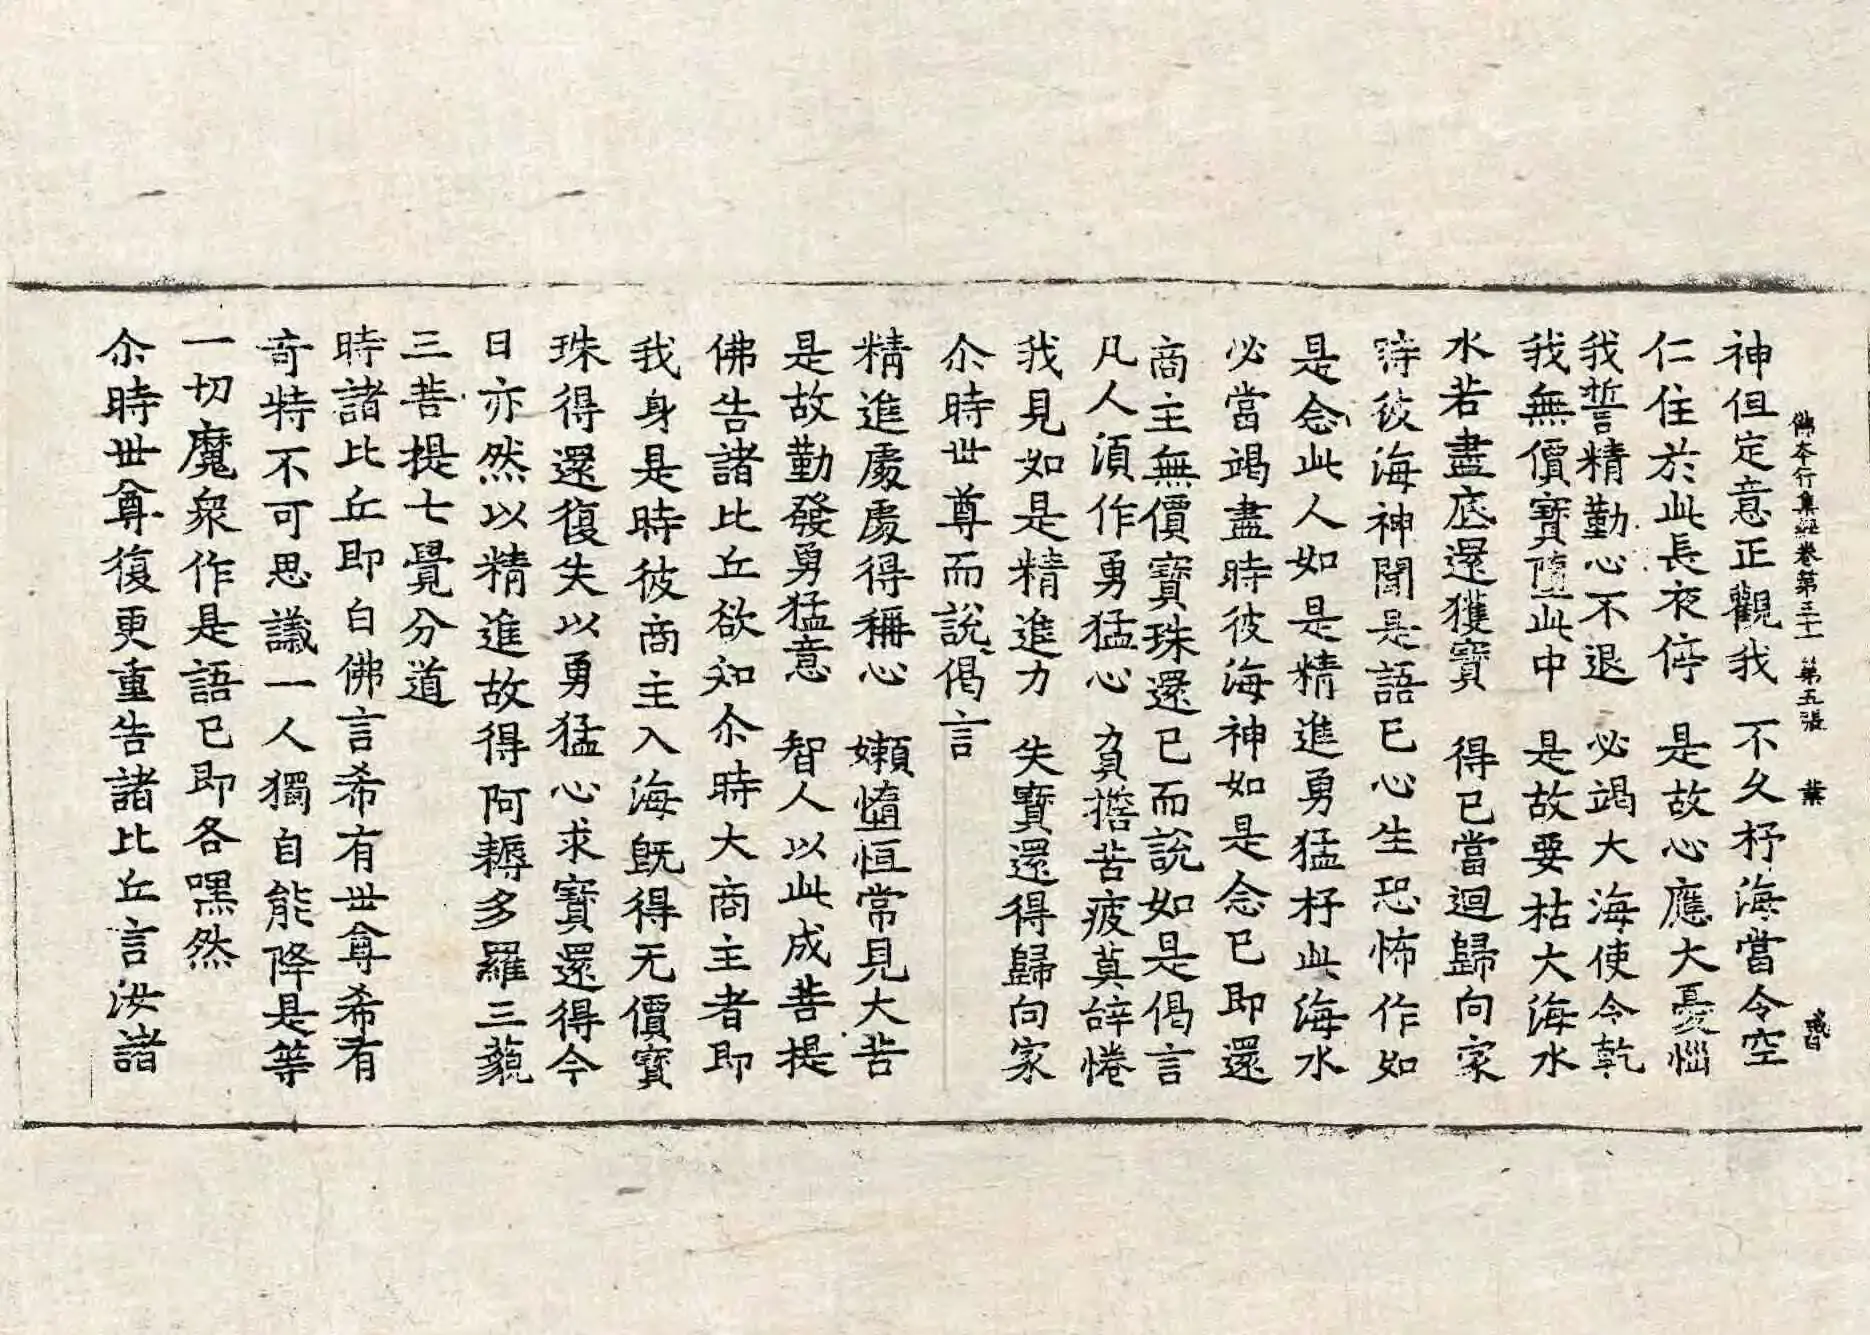 佛本行集經卷第三十一 第五張 業
神但定意正觀我 不久杼海當令空
仁住於此長夜停 是故心應大憂惱
我誓精勤心不退 必竭大海使令乾
我無價寶墮此中 是故要枯大海水
水若盡底還獲寶 得已當迴歸向家
時彼海神聞是語已心生恐怖作如
是念此人如是精進勇猛杼此海水
必當竭盡時彼海神如是念已即還
商主無價寶珠還已而說如是偈言
凡人須作勇猛心 負擔苦疲莫辞惓
我見如是精進力 失寶還得歸向家
尒時世尊而說偈言
精進處處得稱心 嬾惰恒常見大苦
是故勤發勇猛意 智人以此成菩提
佛告諸比丘欲知尒時大商主者即
我身是時彼商主入海既得无價寶
珠得還復失以勇猛心求寶還得今
日亦然以精進故得阿耨多羅三藐
三菩提七覺分道
時諸比丘即白佛言希有世尊希有
奇特不可思議一人獨自能降是等
一切魔衆作是語已即各嘿然
尒時世尊復更重告諸比丘言汝諸